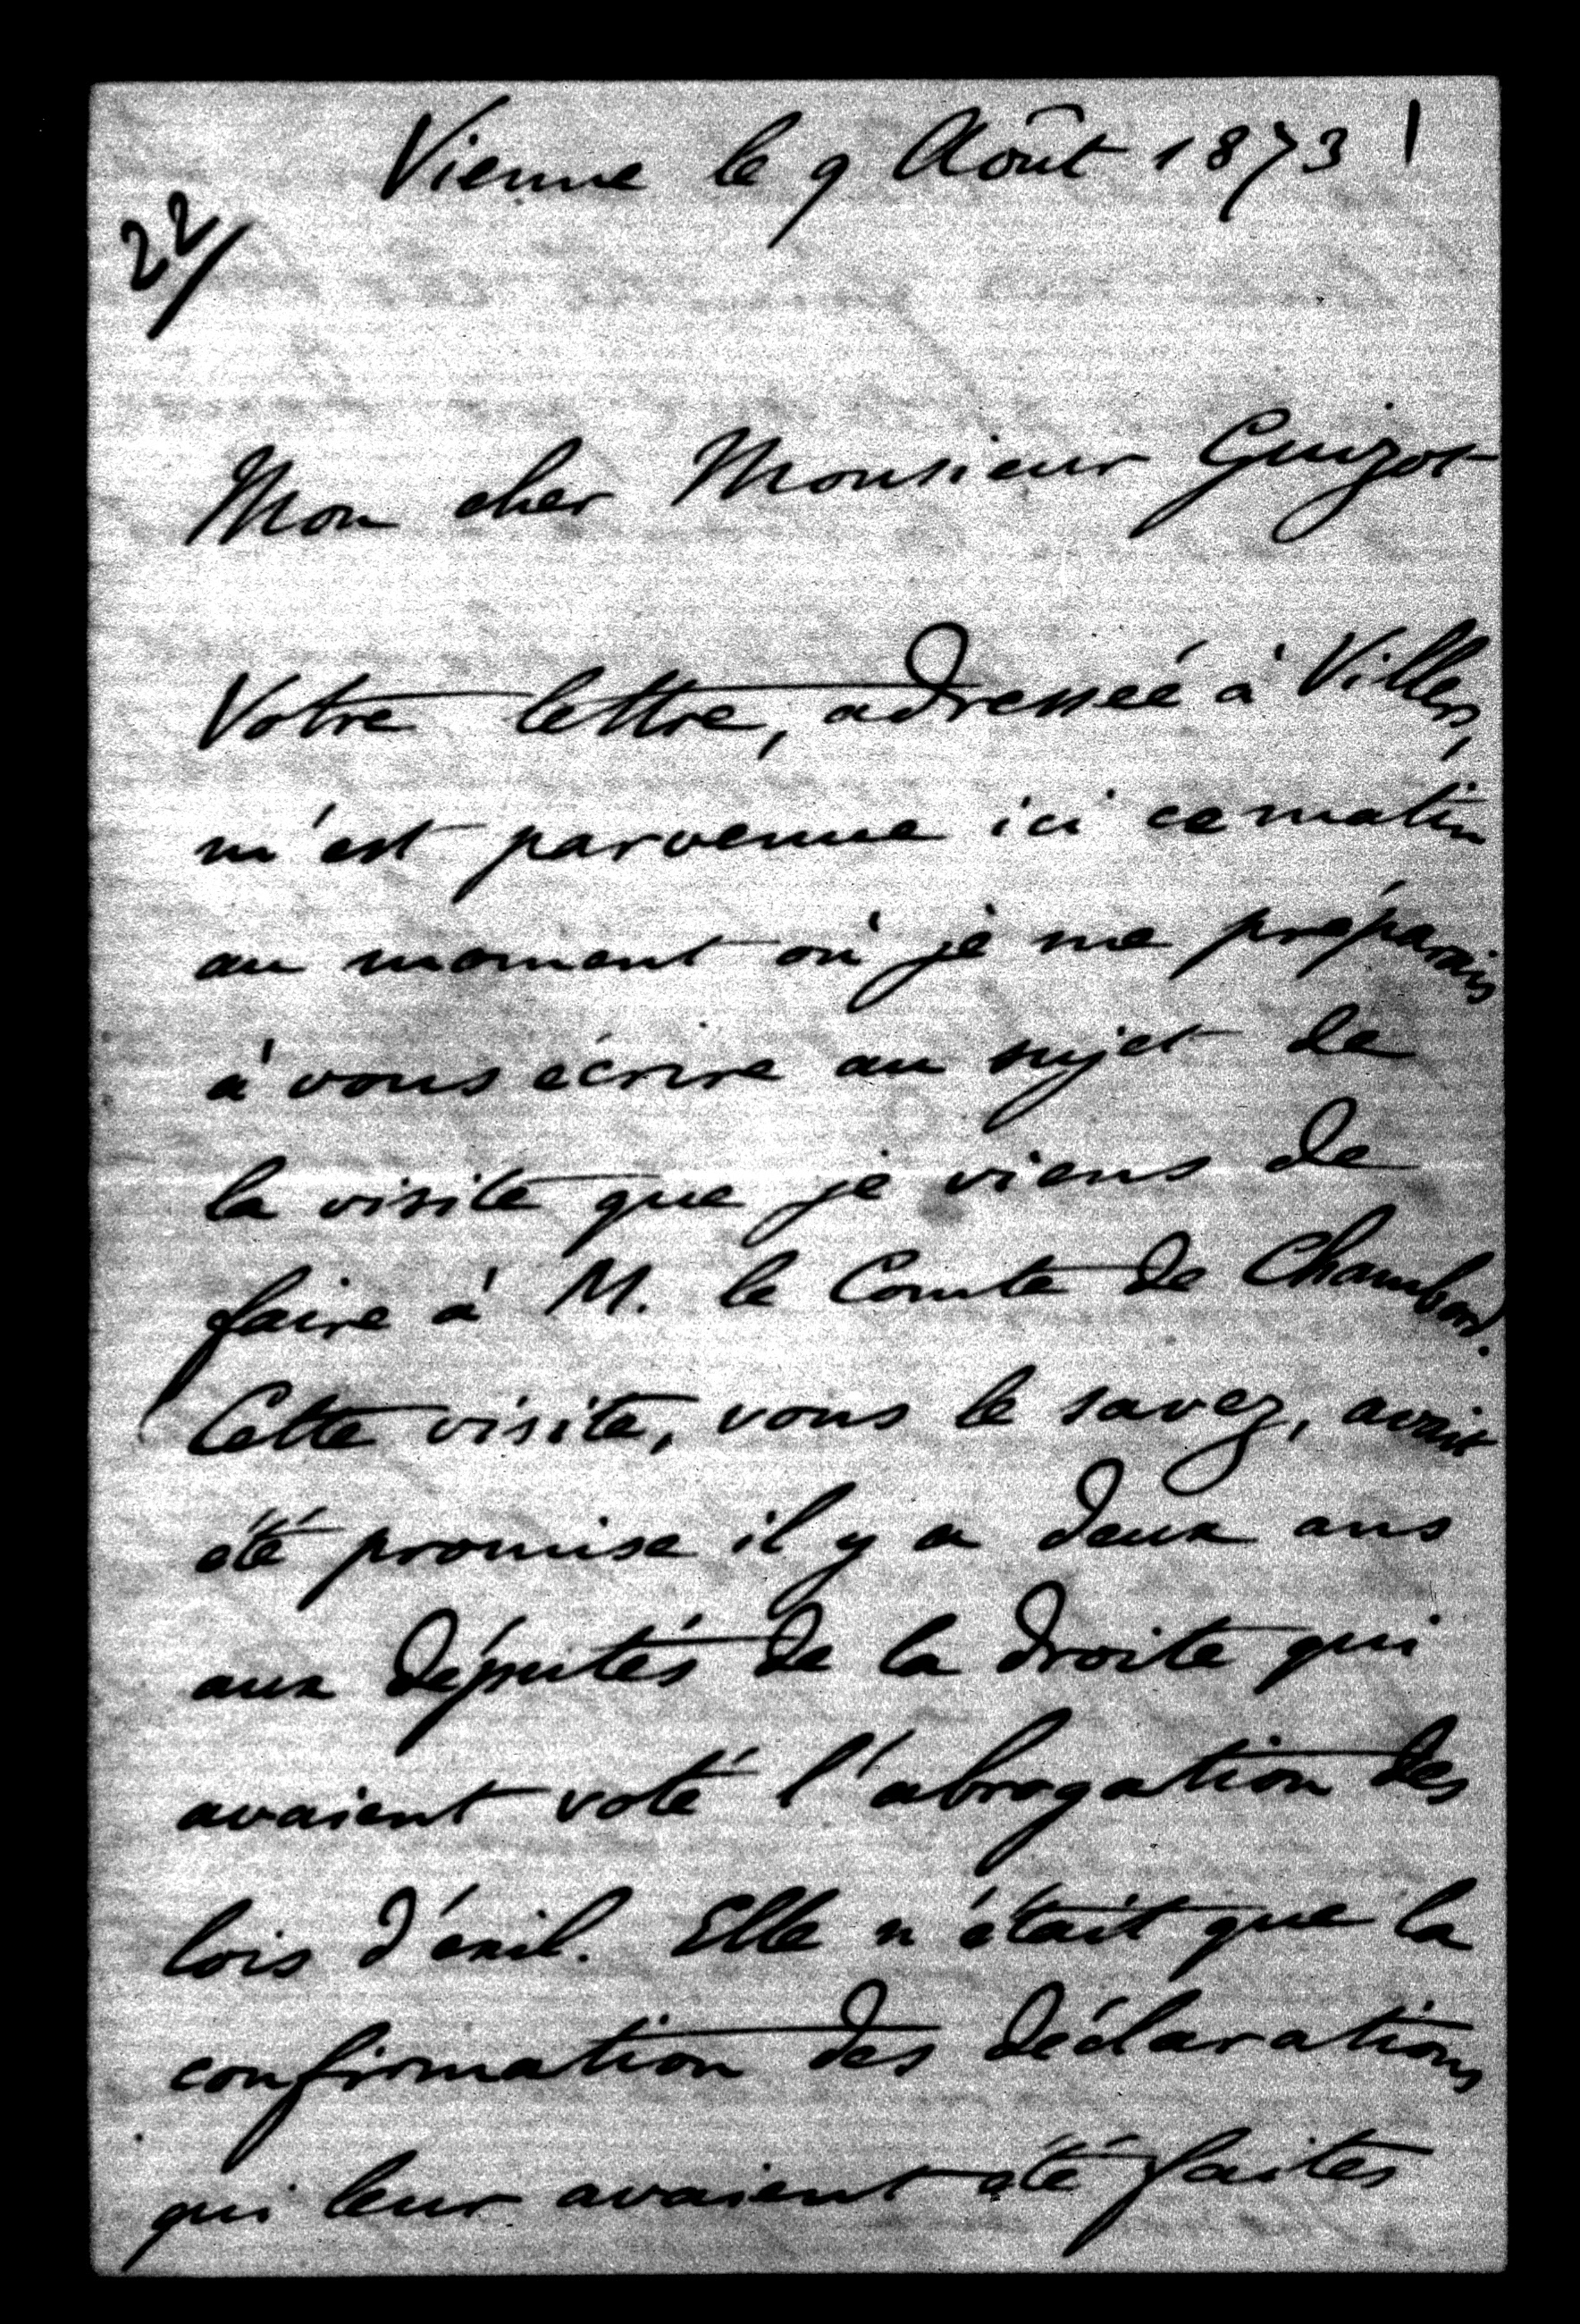 Vienne le 9 Août 1873 1
22/
Mon cher Monsieur Guizot
Votre lettre, adressée à Villers,
m'est parvenue ici ce matin
au moment où je me préparais
à vous écrire au sujet de
la visite que je viens de
faire à M. le Comte de Chambord.
Cette visite, vous le savez, avait
été promise il y a deux ans
aux députés de la droite qui
avaient voté l'abrogation des
lois d'exil. Elle n'était que la
confirmation des déclarations
qui leur avaient été faites